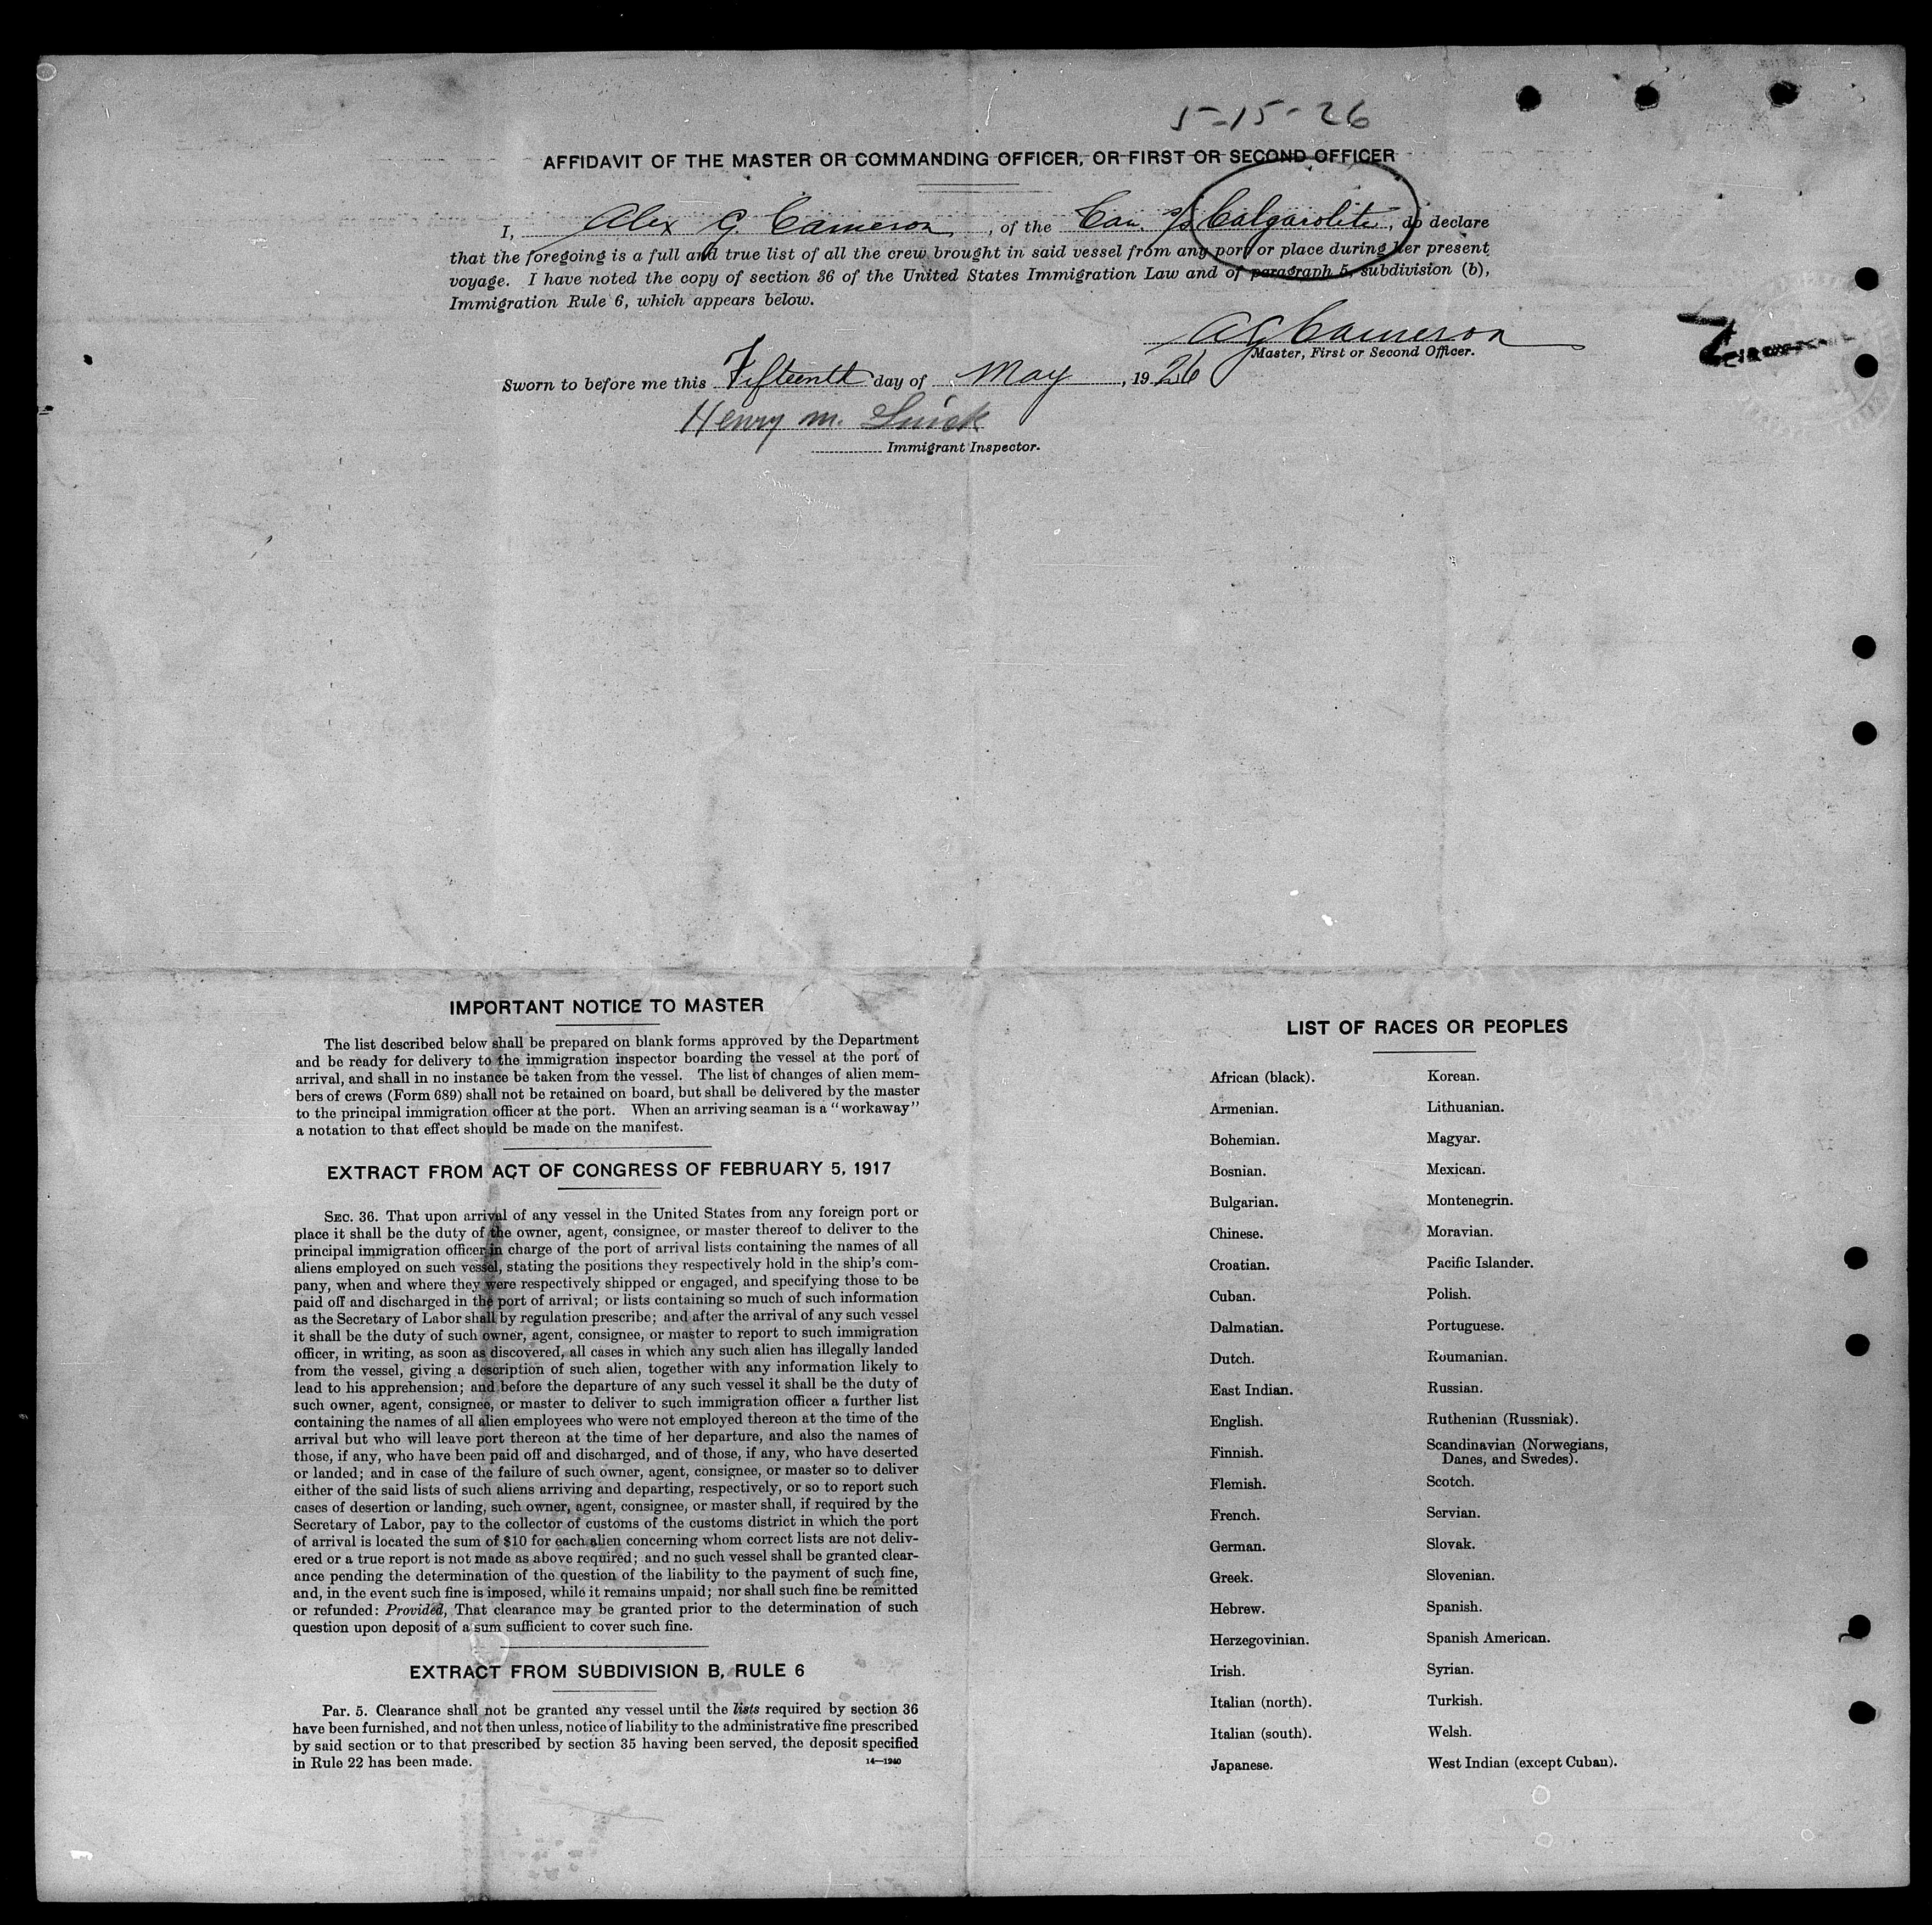 5-15-26
AFFIDAVIT OF THE MASTER OR COMMANDING OFFICER, OR FIRST OR SECOND OFFICER
I, Alex G. Cameron, of the Can. S/S Calgarolite, do declare
that the foregoing is a full and true list of all the crew brought in said vessel from any port or place during her present
voyage. I have noted the copy of section 36 of the United States Immigration Law and of paragraph 5, subdivision (b),
Immigration Rule 6, which appears below.
A G Cameron
Master, First or Second Officer.
Sworn to before me this Fifteenth day of May, 1926
Henry M.
Immigrant Inspector.
IMPORTANT NOTICE TO MASTER
The list described below shall be prepared on blank forms approved by the Department
and be ready for delivery to the immigration inspector boarding the vessel at the port of
arrival, and shall in no instance be taken from the vessel. The list of changes of alien mem-
bers of crews (Form 689) shall not be retained on board, but shall be delivered by the master
to the principal immigration officer at the port. When an arriving seaman is a "workaway"
a notation to that effect should be made on the manifest.
EXTRACT FROM ACT OF CONGRESS OF FEBRUARY 5, 1917
SEC. 36. That upon arrival of any vessel in the United States from any foreign port or
place it shall be the duty of the owner, agent, consignee, or master thereof to deliver to the
principal immigration officer in charge of the port of arrival lists containing the names of all
aliens employed on such vessel, stating the positions they respectively hold in the ship's com-
pany, when and where they were respectively shipped or engaged, and specifying those to be
paid off and discharged in the port of arrival; or lists containing so much of such information
as the Secretary of Labor shall by regulation prescribe; and after the arrival of any such vessel
it shall be the duty of such owner, agent, consignee, or master to report to such immigration
officer, in writing, as soon as discovered, all cases in which any such alien has illegally landed
from the vessel, giving a description of such alien, together with any information likely to
lead to his apprehension; and before the departure of any such vessel it shall be the duty of
such owner, agent, consignee, or master to deliver to such immigration officer a further list
containing the names of all alien employees who were not employed thereon at the time of the
arrival but who will leave port thereon at the time of her departure, and also the names of
those, if any, who have been paid off and discharged, and of those, if any, who have deserted
or landed; and in case of the failure of such owner, agent, consignee, or master so to deliver
either of the said lists of such aliens arriving and departing, respectively, or so to report such
cases of desertion or landing, such owner, agent, consignee, or master shall, if required by the
Secretary of Labor, pay to the collector of customs of the customs district in which the port
of arrival is located the sum of $10 for each alien concerning whom correct lists are not deliv-
ered or a true report is not made as above required; and no such vessel shall be granted clear-
ance pending the determination of the question of the liability to the payment of such fine,
and, in the event such fine is imposed, while it remains unpaid; nor shall such fine be remitted
or refunded: Provided, That clearance may be granted prior to the determination of such
question upon deposit of a sum sufficient to cover such fine.
EXTRACT FROM SUBDIVISION B, RULE 6
Par. 5. Clearance shall not be granted any vessel until the lists required by section 36
have been furnished, and not then unless, notice of liability to the administrative fine prescribed
by said section or to that prescribed by section 35 having been served, the deposit specified
in Rule 22 has been made.
14—1240
LIST OF RACES OR PEOPLES
African (black).
Armenian.
Bohemian.
Bosnian.
Bulgarian.
Chinese.
Croatian.
Cuban.
Dalmatian.
Dutch.
East Indian.
English.
Finnish.
Flemish.
French.
German.
Greek.
Hebrew.
Herzegovinian.
Irish.
Italian (north).
Italian (south).
Japanese.
Korean.
Lithuanian.
Magyar.
Mexican.
Montenegrin.
Moravian.
Pacific Islander.
Polish.
Portuguese.
Roumanian.
Russian.
Ruthenian (Russniak).
Scandinavian (Norwegians,
Danes, and Swedes).
Scotch.
Servian.
Slovak.
Slovenian.
Spanish.
Spanish American.
Syrian.
Turkish.
Welsh.
West Indian (except Cuban).